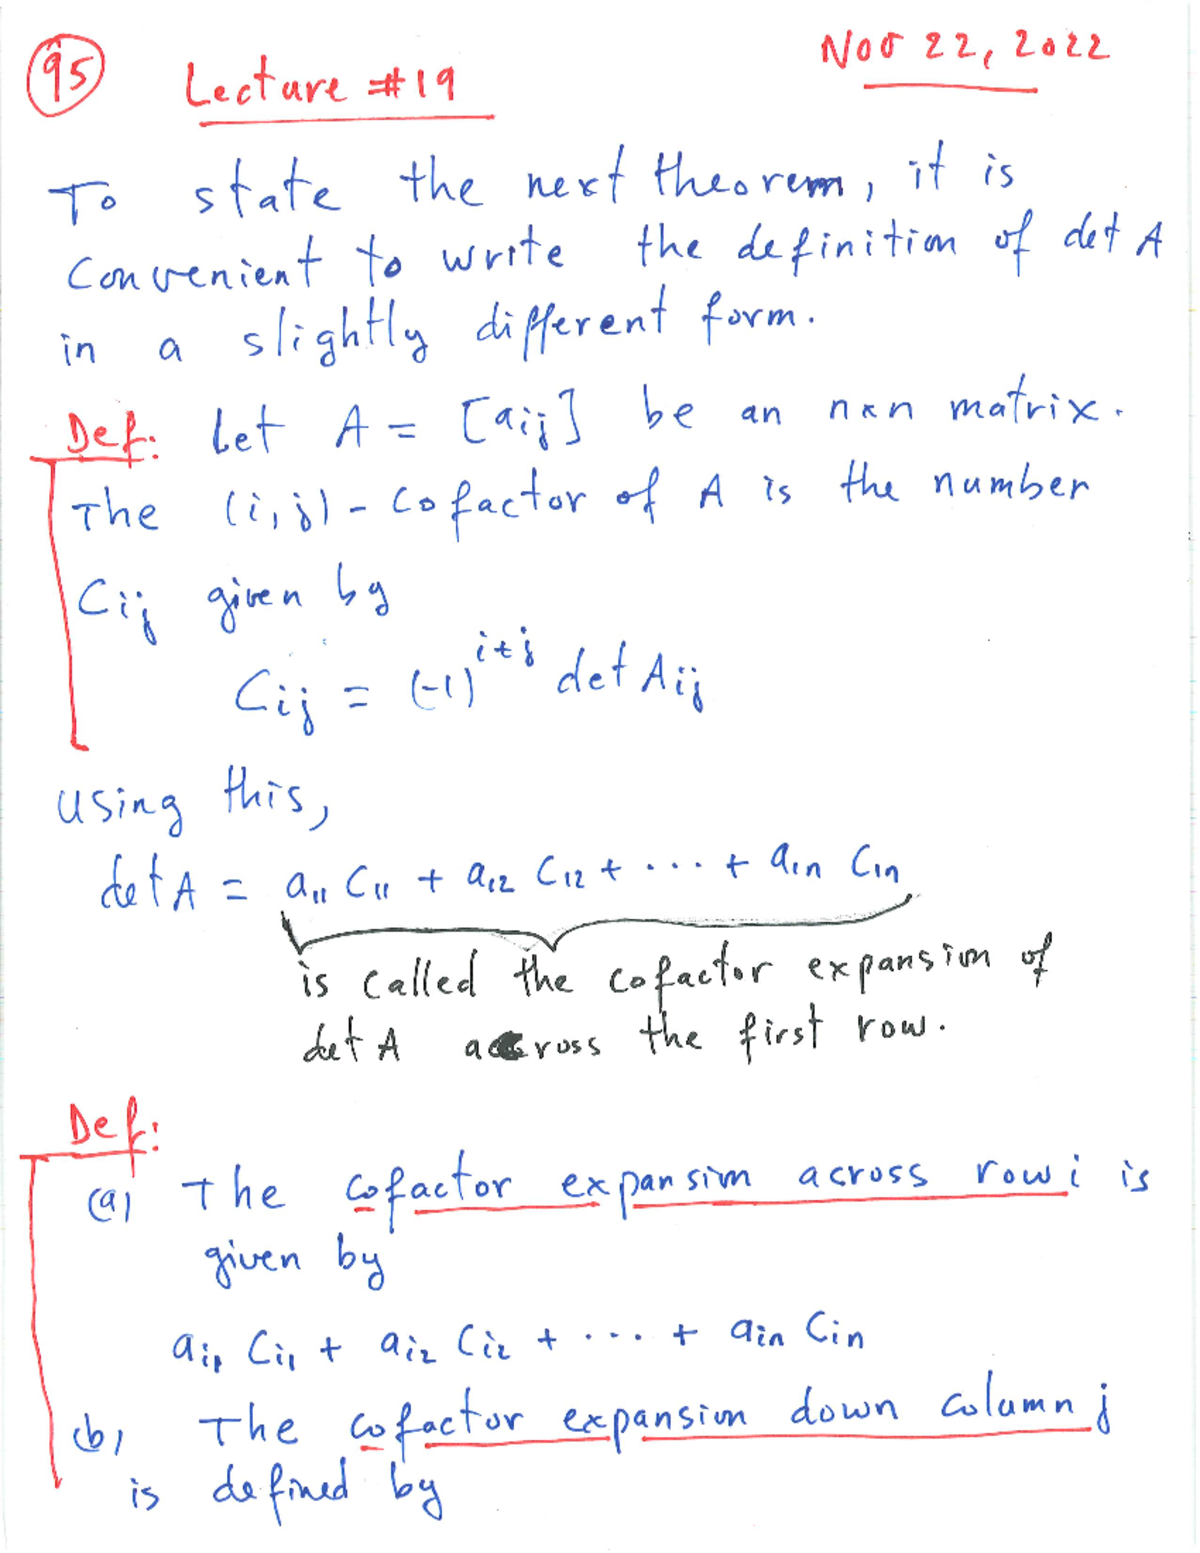 95 Lecture #19 Nov 22, 2022
To state the next theorem, it is
convenient to write the definition of det A
in a slightly different form.
Def: Let A = [aij] be an n×n matrix.
The (i,j)-cofactor of A is the number
Cij given by
Cij = (-1)^{i+j} det Aij
using this,
det A = a11 C11 + a12 C12 + ... + a1n C1n
is called the cofactor expansion of
det A across the first row.
Def:
(a) The cofactor expansion across row i is
given by
ai1 Ci1 + ai2 Ci2 + ... + ain Cin
(b) The cofactor expansion down column j
is defined by